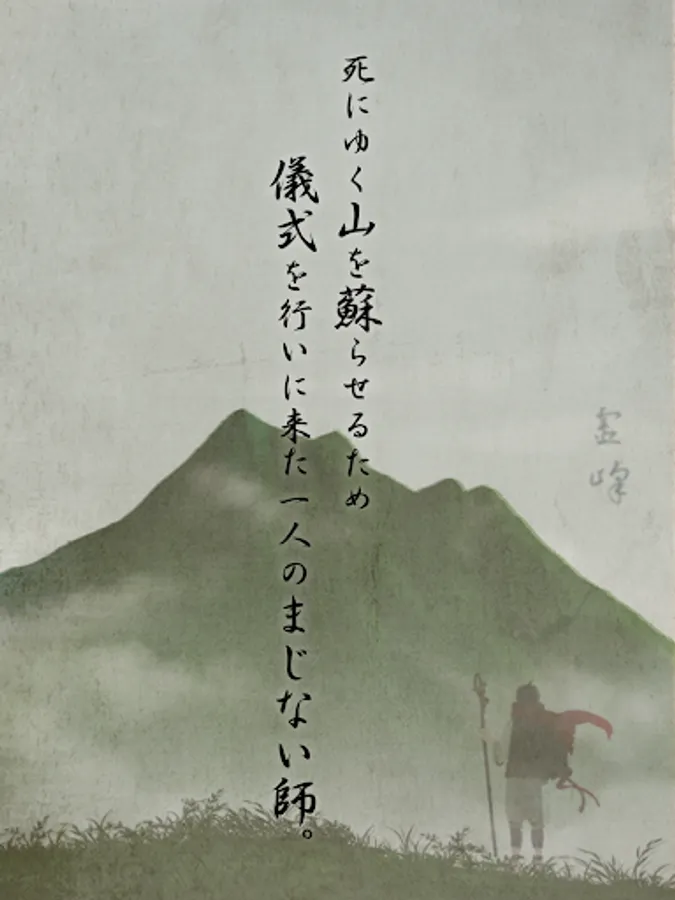 霊峰
死にゆく山を蘇らせるため
儀式を行いに来た一人のまじない師。